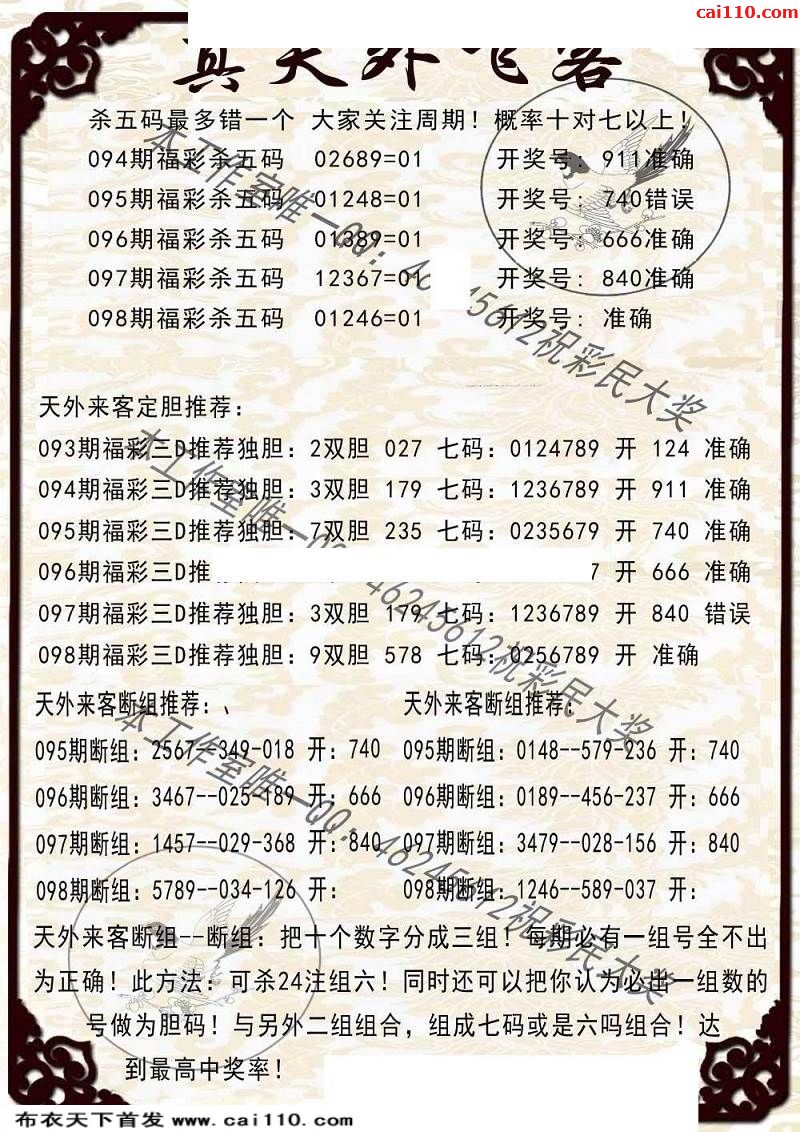 cai110.com
真天外飞客
杀五码最多错一个 大家关注周期！概率十对七以上！
094期福彩杀五码 02689=01 开奖号：911准确
095期福彩杀五码 01248=01 开奖号：740错误
096期福彩杀五码 01389=01 开奖号：666准确
097期福彩杀五码 12367=01 开奖号：840准确
098期福彩杀五码 01246=01 开奖号：准确
天外来客定胆推荐：
093期福彩三D推荐独胆：2双胆 027 七码：0124789 开 124 准确
094期福彩三D推荐独胆：3双胆 179 七码：1236789 开 911 准确
095期福彩三D推荐独胆：7双胆 235 七码：0235679 开 740 准确
096期福彩三D推 7 开 666 准确
097期福彩三D推荐独胆：3双胆 179 七码：1236789 开 840 错误
098期福彩三D推荐独胆：9双胆 578 七码：0256789 开 准确
天外来客断组推荐：、 天外来客断组推荐：
095期断组：2567--349-018 开：740 095期断组：0148--579-236 开：740
096期断组：3467--025-189 开：666 096期断组：0189--456-237 开：666
097期断组：1457--029-368 开：840 097期断组：3479--028-156 开：840
098期断组：5789--034-126 开： 098期断组：1246--589-037 开：
天外来客断组--断组：把十个数字分成三组！每期必有一组号全不出
为正确！此方法：可杀24注组六！同时还可以把你认为必出一组数的
号做为胆码！与另外二组组合，组成七码或是六吗组合！达
到最高中奖率！
本工作室唯一QQ：46245612祝彩民大奖
本工作室唯一QQ：46245612祝彩民大奖
本工作室唯一QQ：46245612祝彩民大奖
布衣天下首发 www.cai110.com